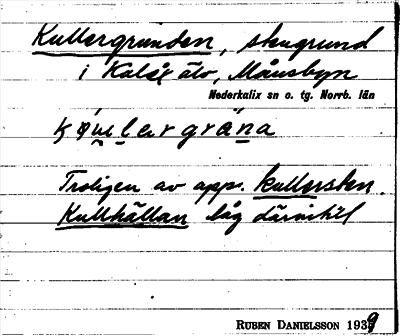 Kullergrunden, stengrund
i Kalix älv, Månsbyn
Nederkalix sn o. tg. Norrb. län
Troligen av app. kullersten.
Kullhällan låg därintill
RUBEN DANIELSSON 1939